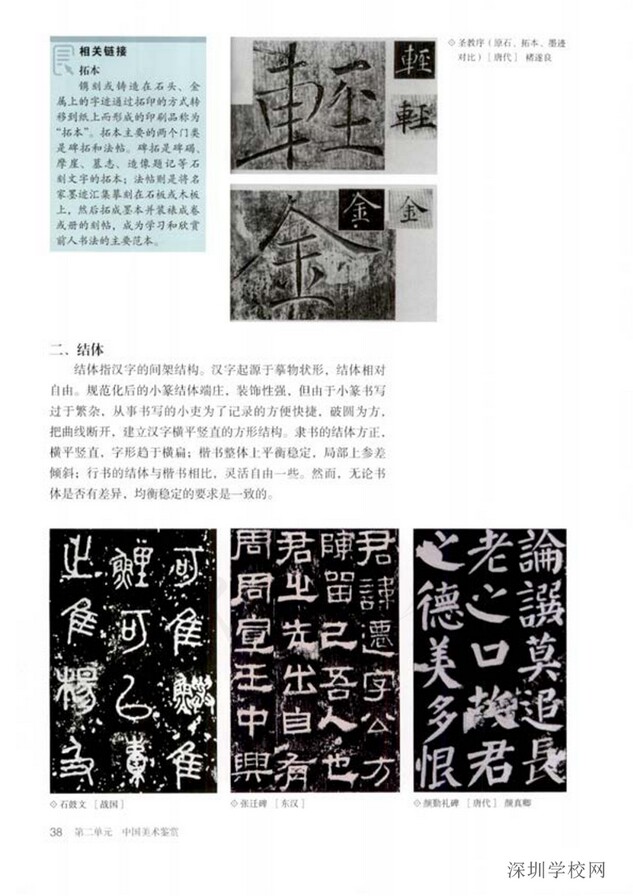 相关链接
拓本
镌刻或铸造在石头、金
属上的字迹通过拓印的方式转
移到纸上而形成的印刷品称为
“拓本”。拓本主要的两个门类
是碑拓和法帖。碑拓是碑碣、
摩崖、墓志、造像题记等石
刻文字的拓本；法帖则是将名
家墨迹汇集摹刻在石板或木板
上，然后拓成墨本并装裱成卷
或册的刻帖，成为学习和欣赏
前人书法的主要范本。
輕
輕
輕
金
金
金
◇圣教序（原石、拓本、墨迹
对比）［唐代］ 褚遂良
二、结体
结体指汉字的间架结构。汉字起源于摹物状形，结体相对
自由。规范化后的小篆结体端庄，装饰性强，但由于小篆书写
过于繁杂，从事书写的小吏为了记录的方便快捷，破圆为方，
把曲线断开，建立汉字横平竖直的方形结构。隶书的结体方正，
横平竖直，字形趋于横扁；楷书整体上平衡稳定，局部上参差
倾斜；行书的结体与楷书相比，灵活自由一些。然而，无论书
体是否有差异，均衡稳定的要求是一致的。
君諱遷字公方
陳留己吾人也
君之先出自有
周周宣王中興
論譔莫追長
老之口故君
之德美多恨
◇石鼓文 ［战国］
◇张迁碑 ［东汉］
◇颜勤礼碑 ［唐代］ 颜真卿
38 第二单元 中国美术鉴赏
深圳学校网